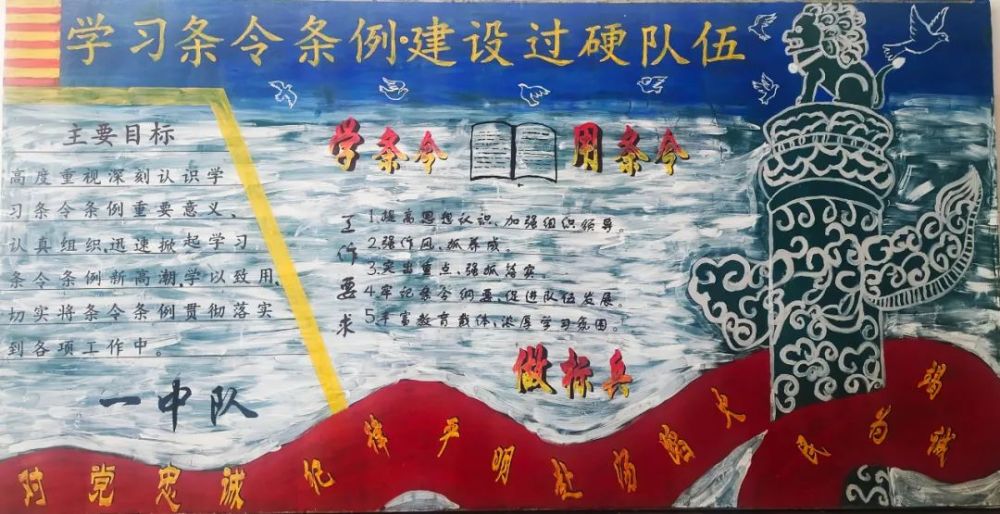 学习条令条例·建设过硬队伍
主要目标
高度重视深刻认识学
习条令条例重要意义、
认真组织、迅速掀起学习
条令条例新高潮,学以致用,
切实将条令条例贯彻落实
到各项工作中。
一中队
学条令 用条令
工作要求
1.提高思想认识、加强组织领导。
2.强作风、抓养成。
3.突出重点、强抓落实。
4.牢记条令纲要、促进队伍发展。
5.丰富教育载体、浓厚学习氛围。
做标兵
对党忠诚 纪律严明 赴汤蹈火 竭诚为民